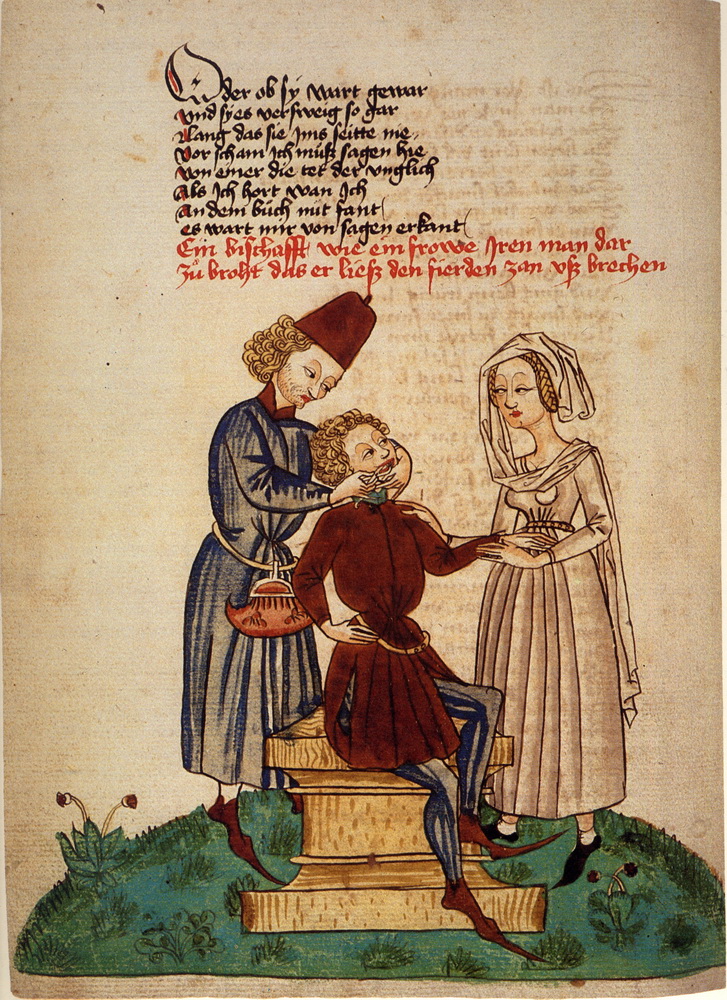 Oder ob sÿ wart gewar
Vnd sÿes versweig so gar
Alang das sie Jms seitte nie
Vor scham Jch müsz sagen hie
Von einer die tet der vnglich
Als Jch hort wan Jch
An dem büch mit fant
es wart mir von sagen erkant
Ein bischafft wie ein frowe Jren man dar
Zů broht das er liesz den fierden zan vsz brechen